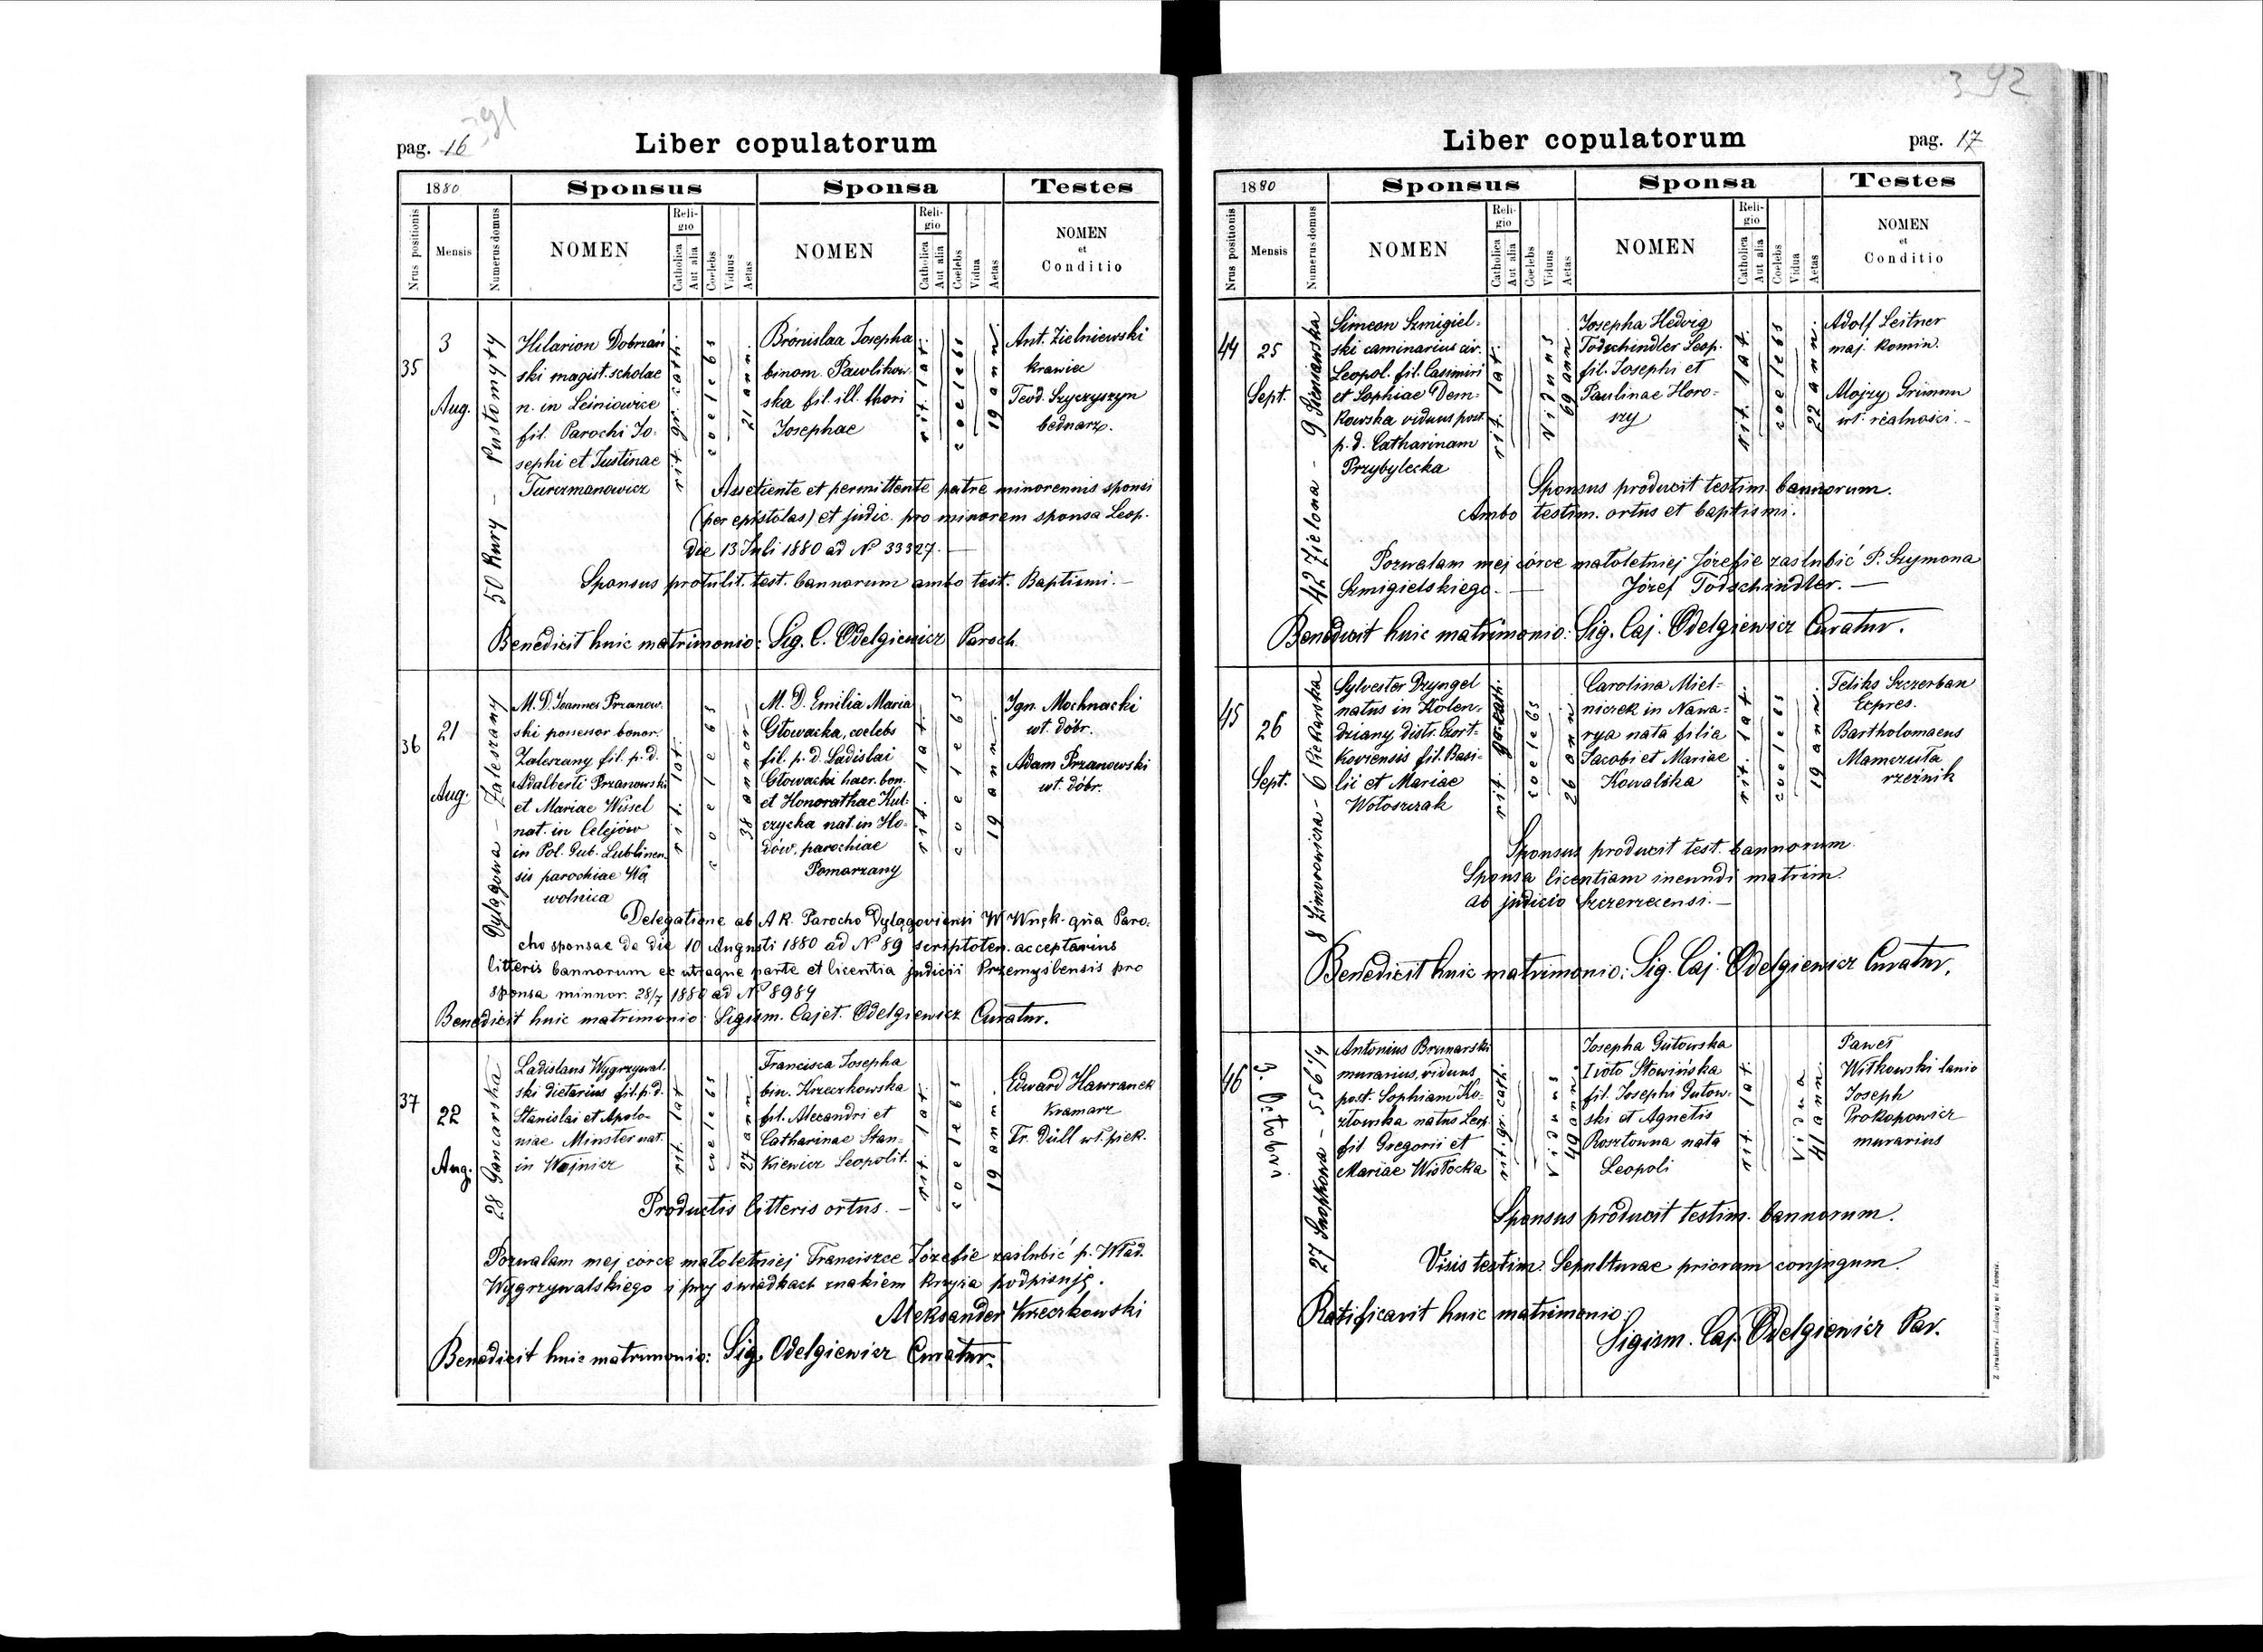 391
pag. 16
Liber copulatorum
1880
Sponsus
Sponsa
Testes
Nrus positionis
Mensis
Numerus domus
NOMEN
Religio
Catholica
Aut alia
Coelebs
Viduus
Aetas
NOMEN
Religio
Catholica
Aut alia
Coelebs
Vidua
Aetas
NOMEN
et
Conditio
35
3
Aug.
50 Kury – Pustomyty
Hilarion Dobrzań
ski magist. scholae
n. in Leśniowice
fil. Parochi Jo-
sephi et Justinae
Turczmanowicz
rit. gr. cath.
coelebs
21 ann.
Brónislaa Josepha
binom. Pawlikow
ska fil. ill. thori
Josephae
rit. lat.
coelebs
19 ann.
Ant. Zielniewski
krawiec
Teod. Szyczyszyn
bednarz.
Assetiente et permittente patre minorennis sponsi
(per epistolas) et judic. pro minorem sponsa Leop.
die 13 Juli 1880 ad No 33327. —
Sponsus protulit. test. bannorum ambo test. Baptismi. —
Benedicit huic matrimonio: Sig. C. Odelgiewicz Paroch.
36
21
Aug.
Dylągowa – Zaleszany
M. D. Joannes Przanow.
ski possessor bonor.
Zaleszany fil. p. d.
Adalberti Przanowski
et Mariae Wissel
nat. in Celejów
in Pol. Gub. Lublinen
sis parochiae Wą
wolnica
rit. lat.
coelebs
38 annor
M. D. Emilia Maria
Głowacka, coelebs
fil. p. d. Ladislai
Głowacki haer. bon.
et Honorathae Kul-
czycka nat. in Ho-
dów, parochiae
Pomarzany
rit. lat.
coelebs
19 ann.
Ign. Mochnacki
wł. dóbr.
Adam Przanowski
wł. dóbr.
Delegatione ab A R. Parocho Dylągoviensi W Wnęk. qua Paro-
cho sponsae de die 10 Augusti 1880 ad No 89 scriptoten. acceptarius
litteris bannorum ex utraque parte et licentia judicii Przemyślensis pro
sponsa minnor. 28/7 1880 ad No 8984
Benedicit huic matrimonio: Sigism. Cajet. Odelgiewicz Curatur.
37
22
Aug.
28 Gancarska
Ladislaus Wygrzywal.
ski dietarius fil. p. d.
Stanislai et Apolo-
niae Minster nat.
in Wojnicz
rit. lat
coelebs
27 ann.
Francisca Josepha
bin. Krzeczkowska
fil. Alexandri et
Catharinae Stan-
kiewicz Leopolit.
rit. lat.
coelebs
19 ann.
Edward Hawranek
Kramarz
Fr. Düll wł. piek.
Productis litteris ortus. —
Pozwalam mej córce małoletniej Franciszce Józefie zaslubić p. Wład.
Wygrzywalskiego i przy swiadkach znakiem krzyża podpisuję.
Aleksander Krzeczkowski
Benedicit huic matrimonio: Sig. Odelgiewicz Curatur.
392
Liber copulatorum
pag. 17
1880
Sponsus
Sponsa
Testes
Nrus positionis
Mensis
Numerus domus
NOMEN
Religio
Catholica
Aut alia
Coelebs
Viduus
Aetas
NOMEN
Religio
Catholica
Aut alia
Coelebs
Vidua
Aetas
NOMEN
et
Conditio
44
25
Sept.
42 Zielona – 9 Sieniawska
Simeon Szmigiel-
ski caminarius civ.
Leopol. fil. Casimiri
et Sophiae Dem-
kowska viduus post
p. d. Catharinam
Przybylecka
rit. lat.
viduus
69 ann.
Josepha Hedvig
Todschindler Leop.
fil. Josephi et
Paulinae Horo-
szy
rit. lat.
coelebs
22 ann.
Adolf Leitner
maj. Komin.
Mojzy Grimm
wł. realności. —
Sponsus producit testim. bannorum.
Ambo testim. ortus et baptismi.
Pozwalam mej córce małoletniej Józefie zaslubić P. Szymona
Szmigielskiego. — Józef Todschindler. —
Benedicit huic matrimonio: Sig. Caj. Odelgiewicz Curatur.
45
26
Sept.
8 Zimorowicza – 6 Piekarska
Sylvester Dzyngel
natus in Kolen-
dziany distr. Czort-
koviensis fil. Basi-
lii et Mariae
Wołoszczak
rit. gr. cath.
coelebs
26 ann
Carolina Miel-
niczek in Nawa-
rya nata filia
Jacobi et Mariae
Kowalska
rit. lat.
coelebs
19 ann.
Feliks Szczerban
Expres.
Bartholomaeus
Mamczuta
rzeźnik
Sponsus producit test. bannorum
Sponsa licentiam ineundi matrim.
ab judicio Szczerzecensi. —
Benedicit huic matrimonio: Sig. Caj. Odelgiewicz Curatur.
46
3. Octobri
27 Snopkowa – 556 1/4
Antonius Brunarski
murarius, viduus
post. Sophiam Ko-
złowska natus Leop.
fil Gregorii et
Mariae Wisłocka
rit. gr. cath.
viduus
49 ann.
Josepha Gutowska
I voto Słowińska
fil. Josephi Gutow-
ski et Agnetis
Rosztowna nata
Leopoli
rit. lat.
vidua
41 ann.
Paweł
Witkowski lanio
Joseph
Prokopowicz
murarius
Sponsus producit testim. bannorum.
Visis testim. Sepulturae priorum conjugum.
Ratificavit huic matrimonio:
Sigism. Caj. Odelgiewicz Par.
Z Drukarni Ludowej we Lwowie.